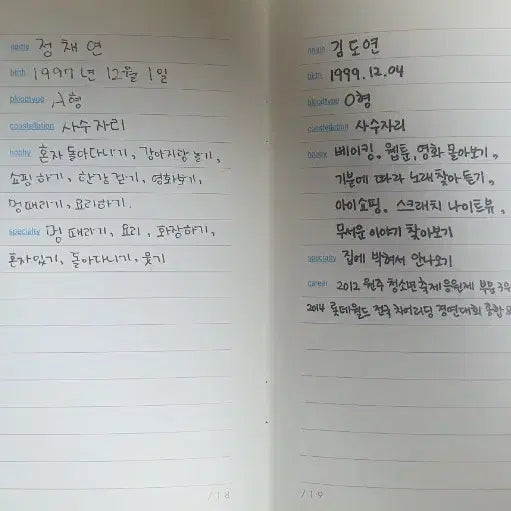 name 정채연
birth 1997년 12월 1일
bloodtype A형
constellation 사수자리
hobby 혼자 돌아다니기, 강아지랑 놀기,
쇼핑하기, 한강 걷기, 영화보기,
멍때리기, 요리하기.
specialty 멍 때리기, 요리, 화장하기,
혼자있기, 돌아다니기, 웃기
/18
name 김도연
birth 1999.12.04
bloodtype O형
constellation 사수자리
hobby 베이킹, 웹툰, 영화 몰아보기,
기분에 따라 노래 찾아 듣기,
아이쇼핑, 스크래치 나이트뷰,
무서운 이야기 찾아보기
specialty 집에 박혀서 안나오기
career 2012 원주 청소년 축제 응원제 부문 3위
2014 롯데월드 전국 치어리딩 경연대회 종합
/19